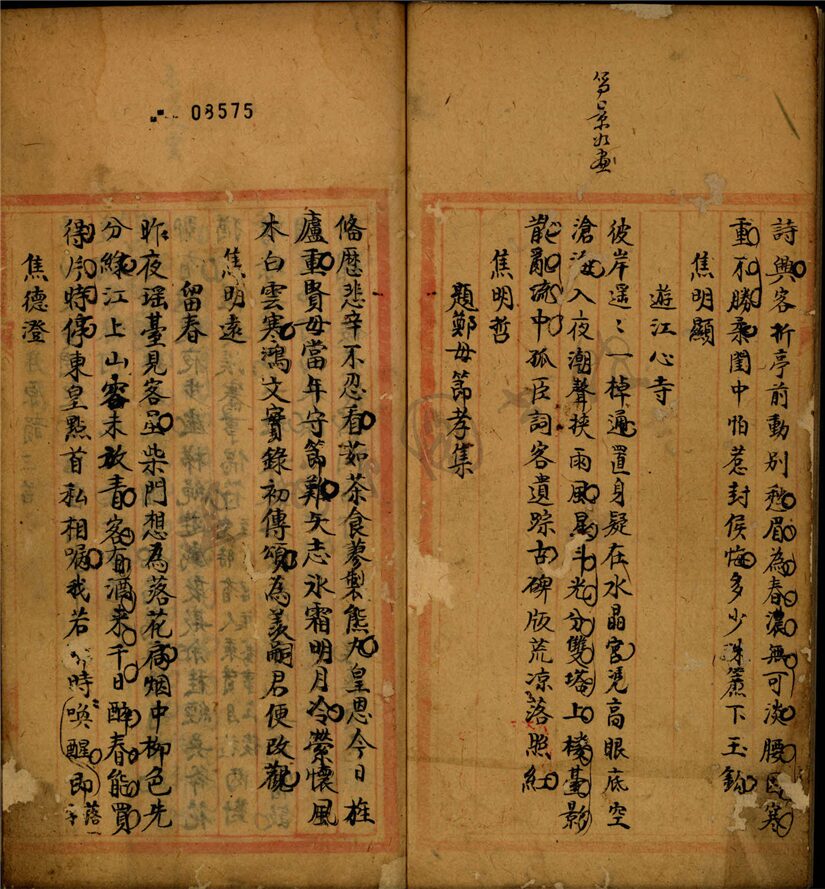 詩興客折亭前動別愁眉為春濃無可淡腰因寒
重不勝柔閨中怕惹封侯悔多少珠簾下玉鈎
焦明顯
遊江心寺
彼岸遥〻一棹通置身疑在水晶宮凭高眼底空
滄海入夜潮聲挟雨風星斗光分雙塔上樓臺影
亂流中孤臣詞客遺踪古碑版荒凉落照紅
焦明哲
題鄭母節孝集
備歷悲辛不忍看茹荼食蓼製熊丸皇恩今日旌
廬重賢母當年守節難矢志氷霜明月冷縈懷風
木白雲寒鴻文實錄初傳頌為羡嗣君便改觀
焦明遠
留春
昨夜瑶臺見客虽柴門想為落花扃烟中柳色先
分綠江上山容未放青客有酒来千日醉春能買
得片時停東皇點首私相囑我若時喚醒即
落一字
焦德澄
08575